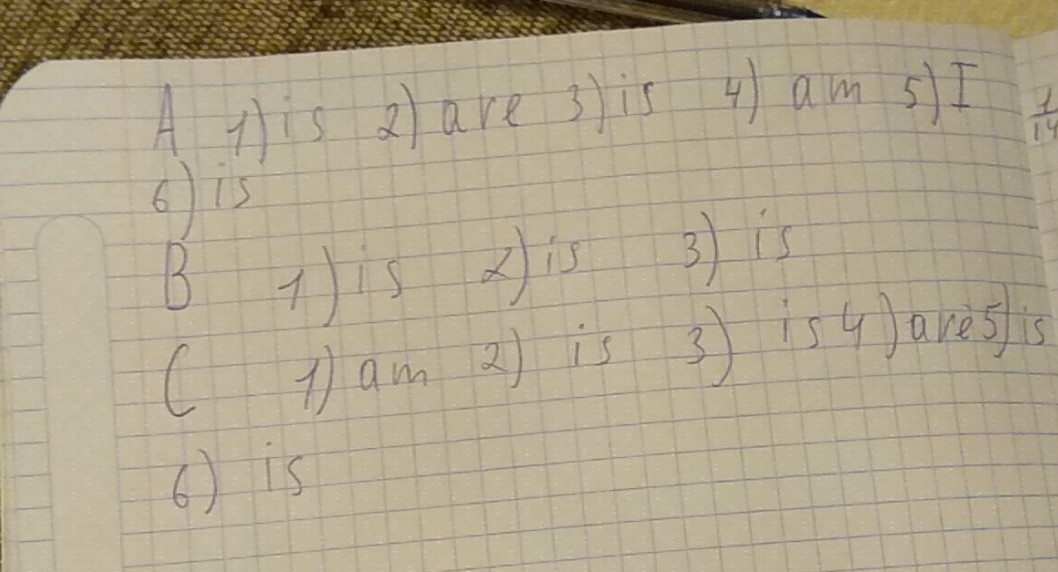 A 1) is 2) are 3) is 4) am 5) I
6) is
B 1) is 2) is 3) is
C 1) am 2) is 3) is 4) are 5) is
6) is